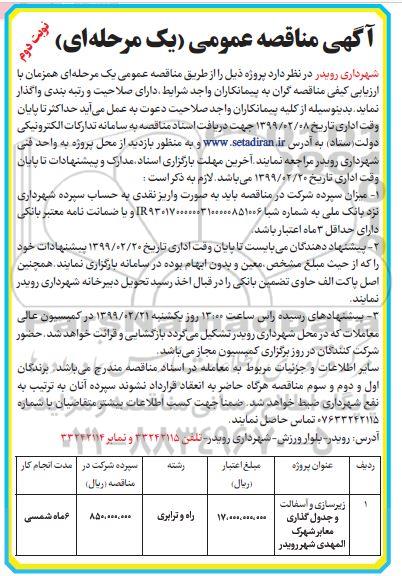 آگهی مناقصه عمومی (یک مرحله‌ای)
نوبت دوم
شهرداری رویدر در نظر دارد پروژه ذیل را از طریق مناقصه عمومی یک مرحله‌ای همزمان با
ارزیابی کیفی مناقصه گران به پیمانکاران واجد شرایط، دارای صلاحیت و رتبه بندی واگذار
نماید. بدینوسیله از کلیه پیمانکاران واجد صلاحیت دعوت به عمل می‌آید حداکثر تا پایان
وقت اداری تاریخ ۱۳۹۹/۰۲/۰۸ جهت دریافت اسناد مناقصه به سامانه تدارکات الکترونیکی
دولت(ستاد) به آدرس www.setadiran.ir و به منظور بازدید از محل پروژه به واحد فنی
شهرداری رویدر مراجعه نمایند. آخرین مهلت بارگزاری اسناد، مدارک و پیشنهادات تا پایان
وقت اداری تاریخ ۱۳۹۹/۰۲/۲۰ می‌باشد. لازم به ذکر است :
۱- میزان سپرده شرکت در مناقصه باید به صورت واریز نقدی به حساب سپرده شهرداری
نزد بانک ملی به شماره شبا
و یا ضمانت نامه معتبر بانکی
دارای حداقل ۳ماه اعتبار باشد.
۲- پیشنهاد دهندگان می‌بایست تا پایان وقت اداری تاریخ ۱۳۹۹/۰۲/۲۰ پیشنهادات خود
را که از حیث مبلغ مشخص، معین و بدون ابهام بوده در سامانه بارگزاری نمایند. همچنین
اصل پاکت الف حاوی تضمین بانکی را در قبال اخذ رسید تحویل دبیرخانه شهرداری رویدر
نمایند.
۳- پیشنهادهای رسیده راس ساعت ۱۳:۰۰ روز یکشنبه ۱۳۹۹/۰۲/۲۱ در کمیسیون عالی
معاملات که در محل شهرداری رویدر تشکیل می‌گردد بازگشایی و قرائت خواهد شد. حضور
شرکت کنندگان در روز برگزاری کمیسیون مجاز می‌باشد.
سایر اطلاعات و جزئیات مربوط به معامله در اسناد مناقصه مندرج می‌باشد. برندگان
اول و دوم و سوم مناقصه هرگاه حاضر به انعقاد قرارداد نشوند سپرده آنان به ترتیب به
نفع شهرداری ضبط خواهد شد. ضمنا جهت کسب اطلاعات بیشتر متقاضیان با شماره
۰۷۶۳۳۲۴۲۱۱۵ تماس حاصل نمایند.
آدرس: رویدر-بلوار ورزش-شهرداری رویدر-تلفن ۳۳۲۴۲۱۱۵ و نمابر ۳۳۲۴۲۱۱۴
ردیف عنوان پروژه مبلغ اعتبار (ریال) رشته سپرده شرکت در مناقصه (ریال) مدت انجام کار
۱ زیرسازی و آسفالت و جدول گذاری معابر شهرک المهدی شهر رویدر ۱۷،۰۰۰،۰۰۰،۰۰۰ راه و ترابری ۸۵۰،۰۰۰،۰۰۰ ۶ماه شمسی